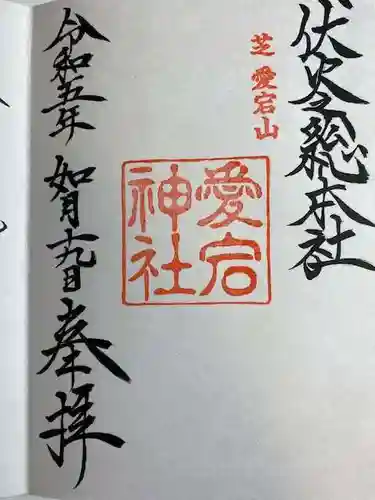 伏火之総本社
芝愛宕山
愛宕
神社
令和五年 如月十九日
奉拝